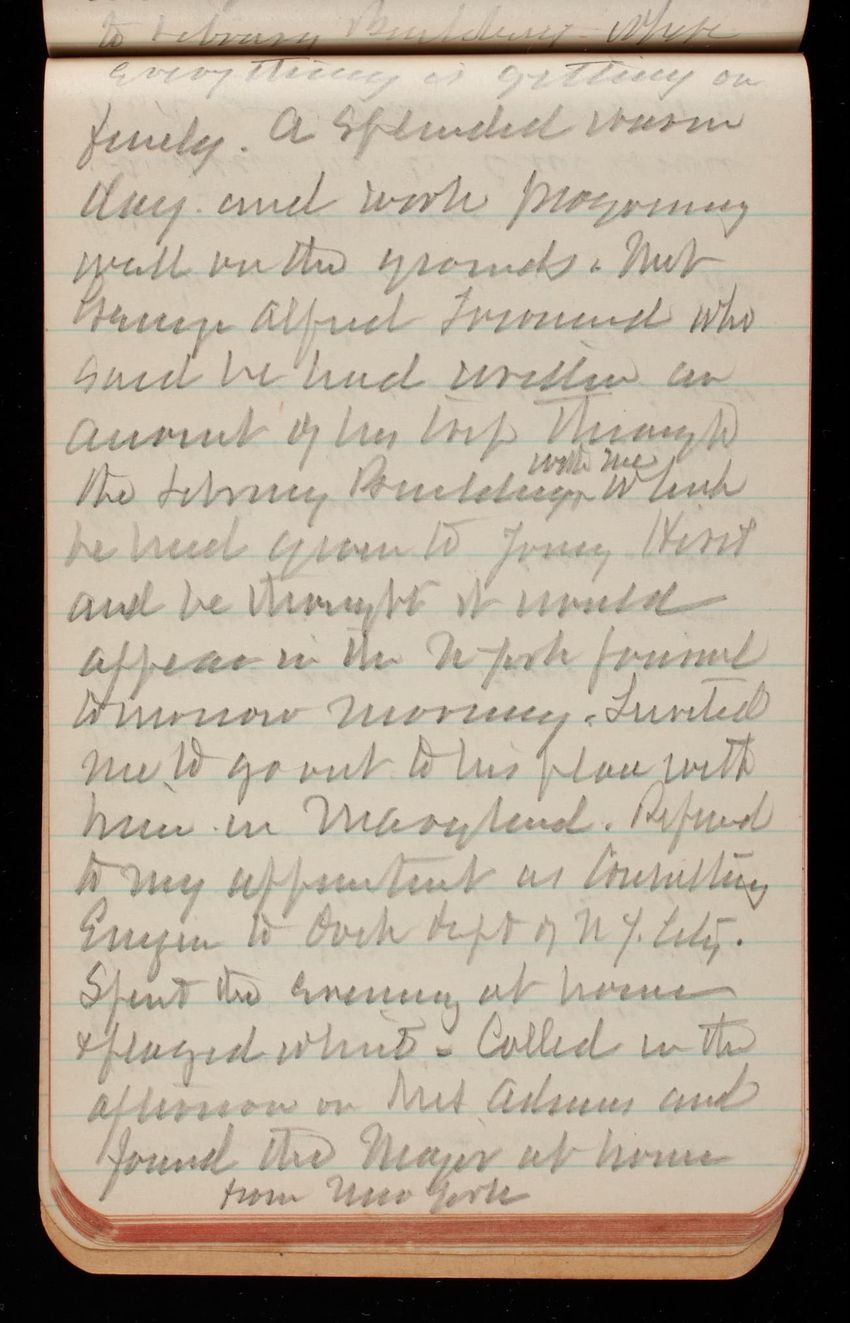 to Library Building where
everything is getting on
finely. A splendid warm
day and work progressing
well on the grounds. Met
George Alfred Townsend who
said he had written an
account of his trip through
the Library Building with me which
he had given to
and he thought it would
appear in the N York Journal
tomorrow morning. Invited
me to go out to his place with
him in Maryland. Refered
to my appointment as Consulting
Engineer to Dock Dept of N Y. City.
Spent the evening at home
& played whist. Called in the
afternoon on Mrs Adams and
found the Major at home
from New York